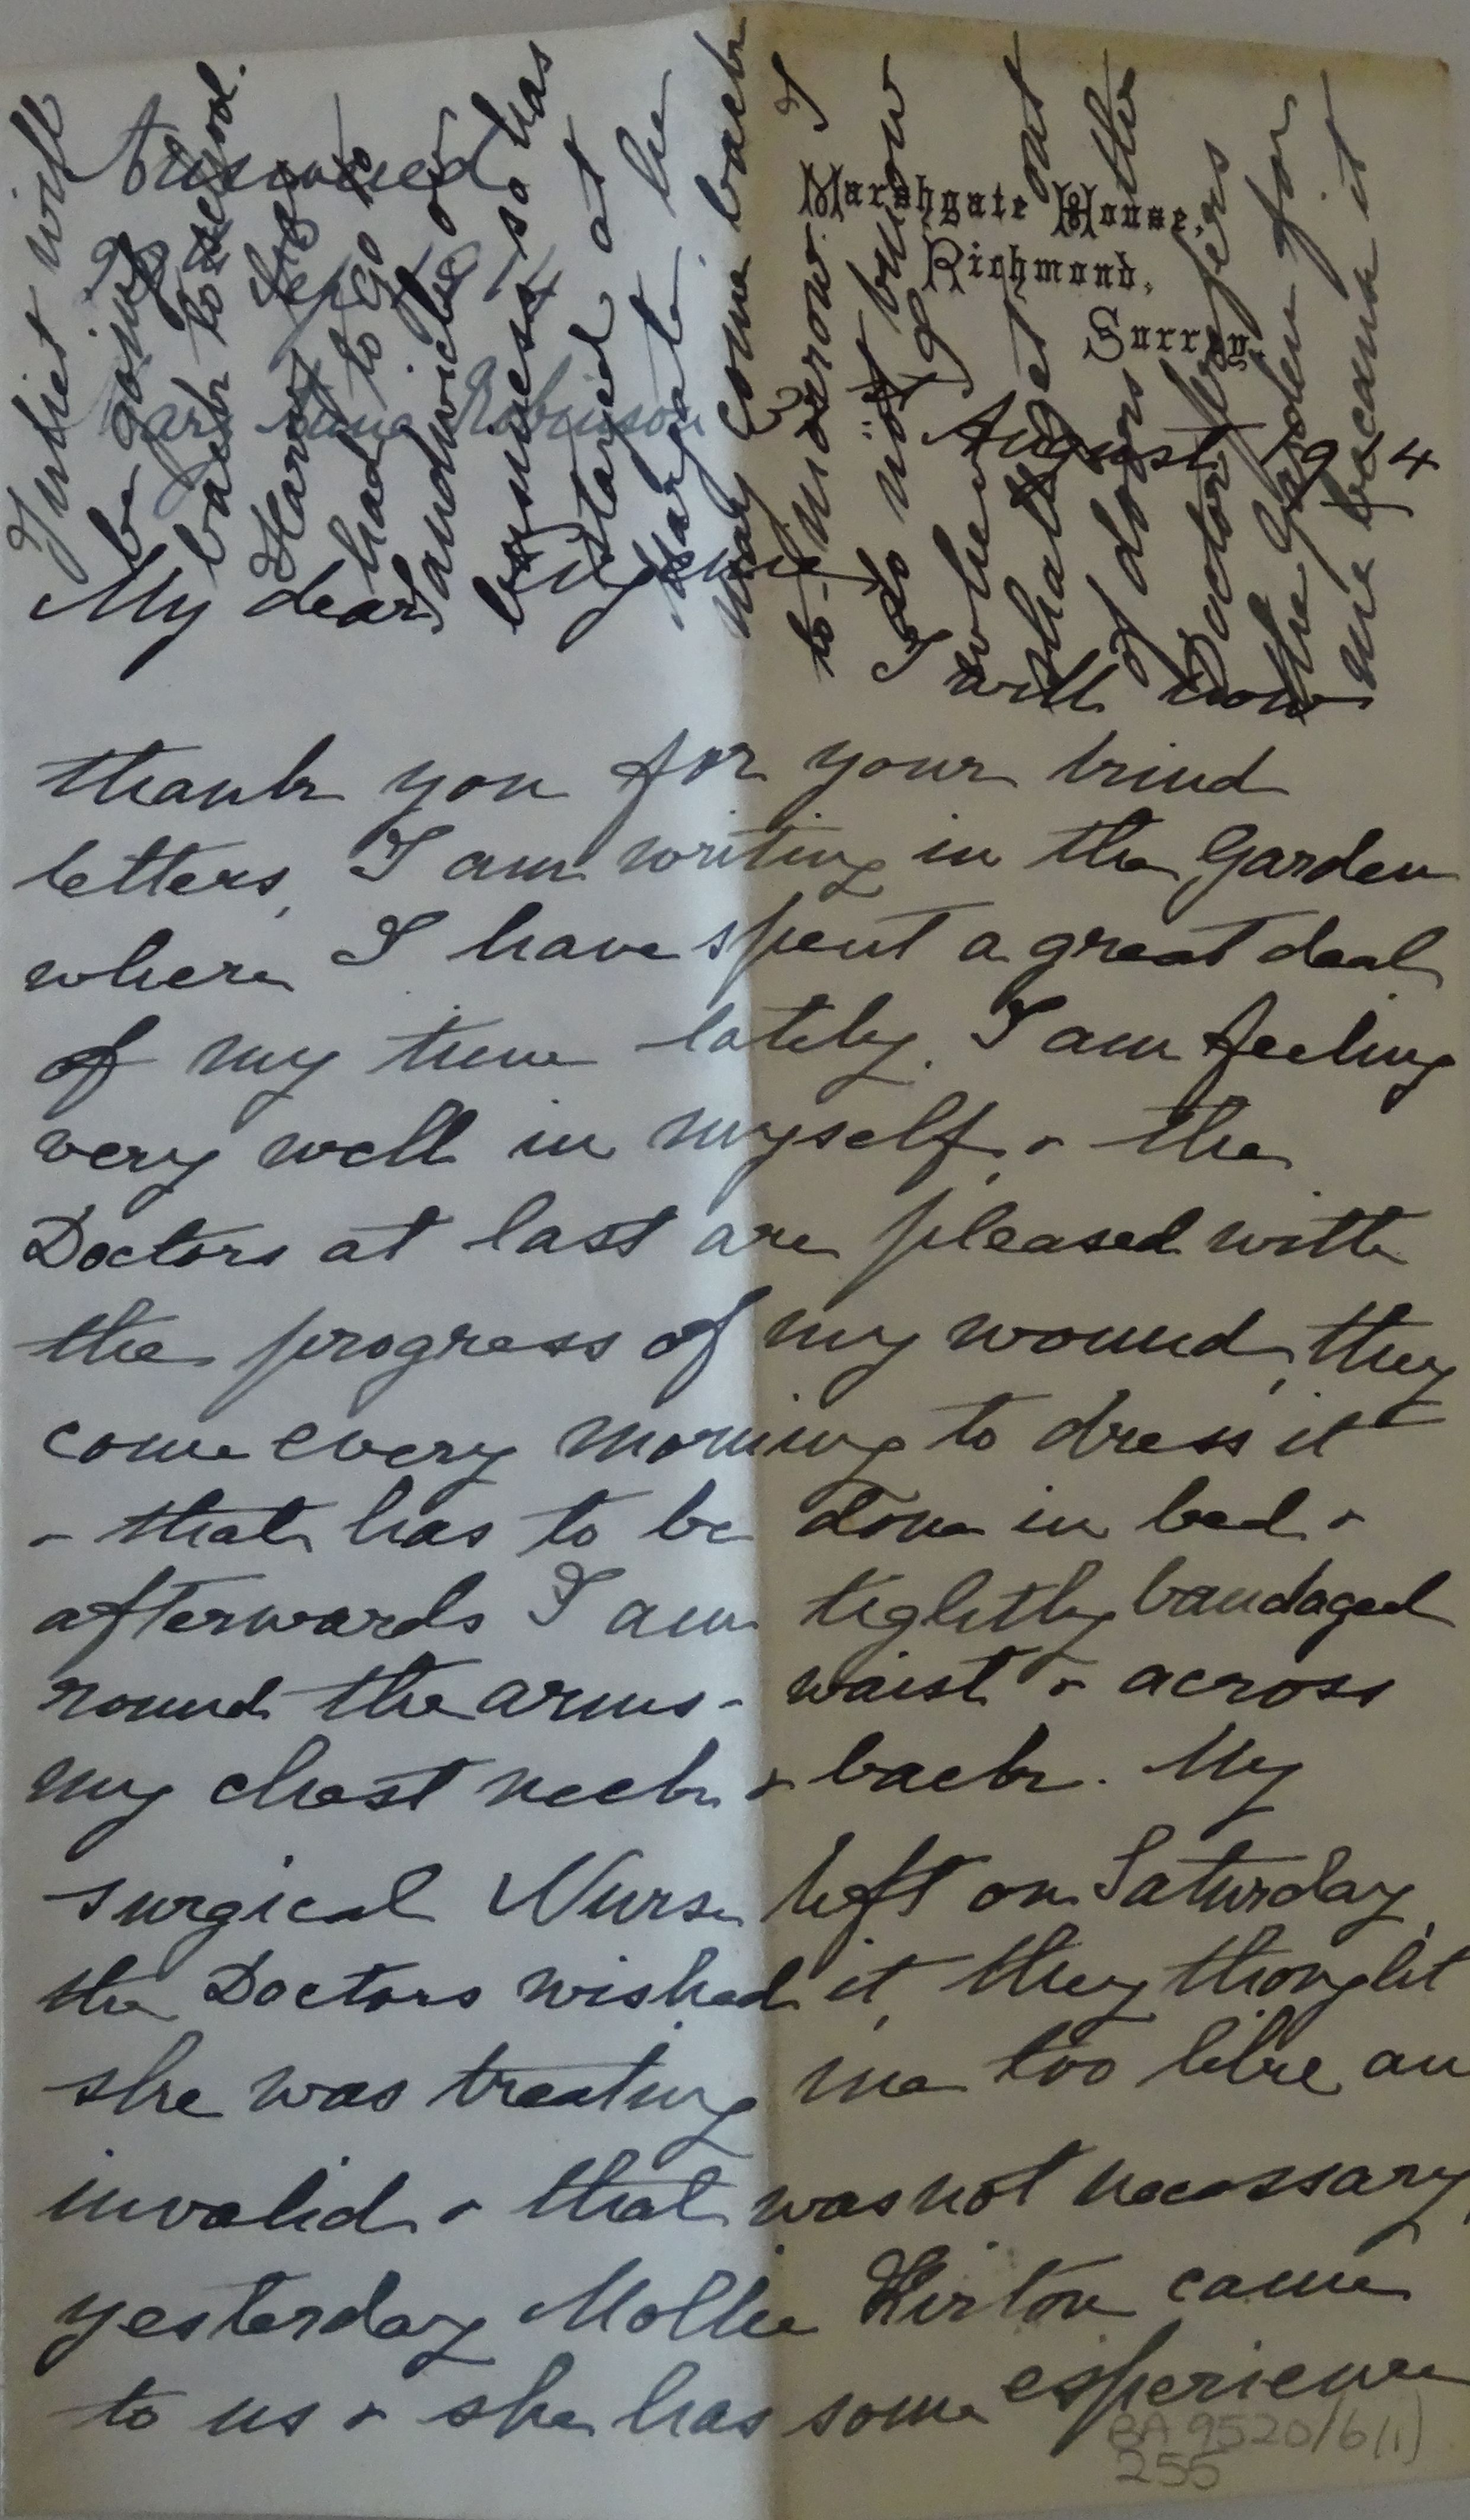 Marshgate House,
Richmond,
Surrey.
Answered
Sept 14
Robinson
3 August 1914
My dear Eugenie
I will now
thank you for your kind
letters, I am writing in the Garden
where I have spent a great deal
of my time lately. I am feeling
very well in myself, & the
Doctors at last are pleased with
the progress of my wound, they
come every morning to dress it
& that has to be done in bed &
afterwards I am tightly bandaged
round the arms - waist & across
my chest neck & back. My
surgical Nurse left on Saturday,
the Doctors wished it, they thought
she was treating me too like an
invalid & that was not necessary,
yesterday Mollie Kirton came
to us & she has some experience
Juliet will
be going
back to school.
Harry has
had to go to
Sandwich on
business so has
stayed at
Margate. he
may come back
to-morrow. I
do not know
when I
shall get out
of doors the
Doctor prefers
the Garden for
me because it
BA 9520/6(1)
255